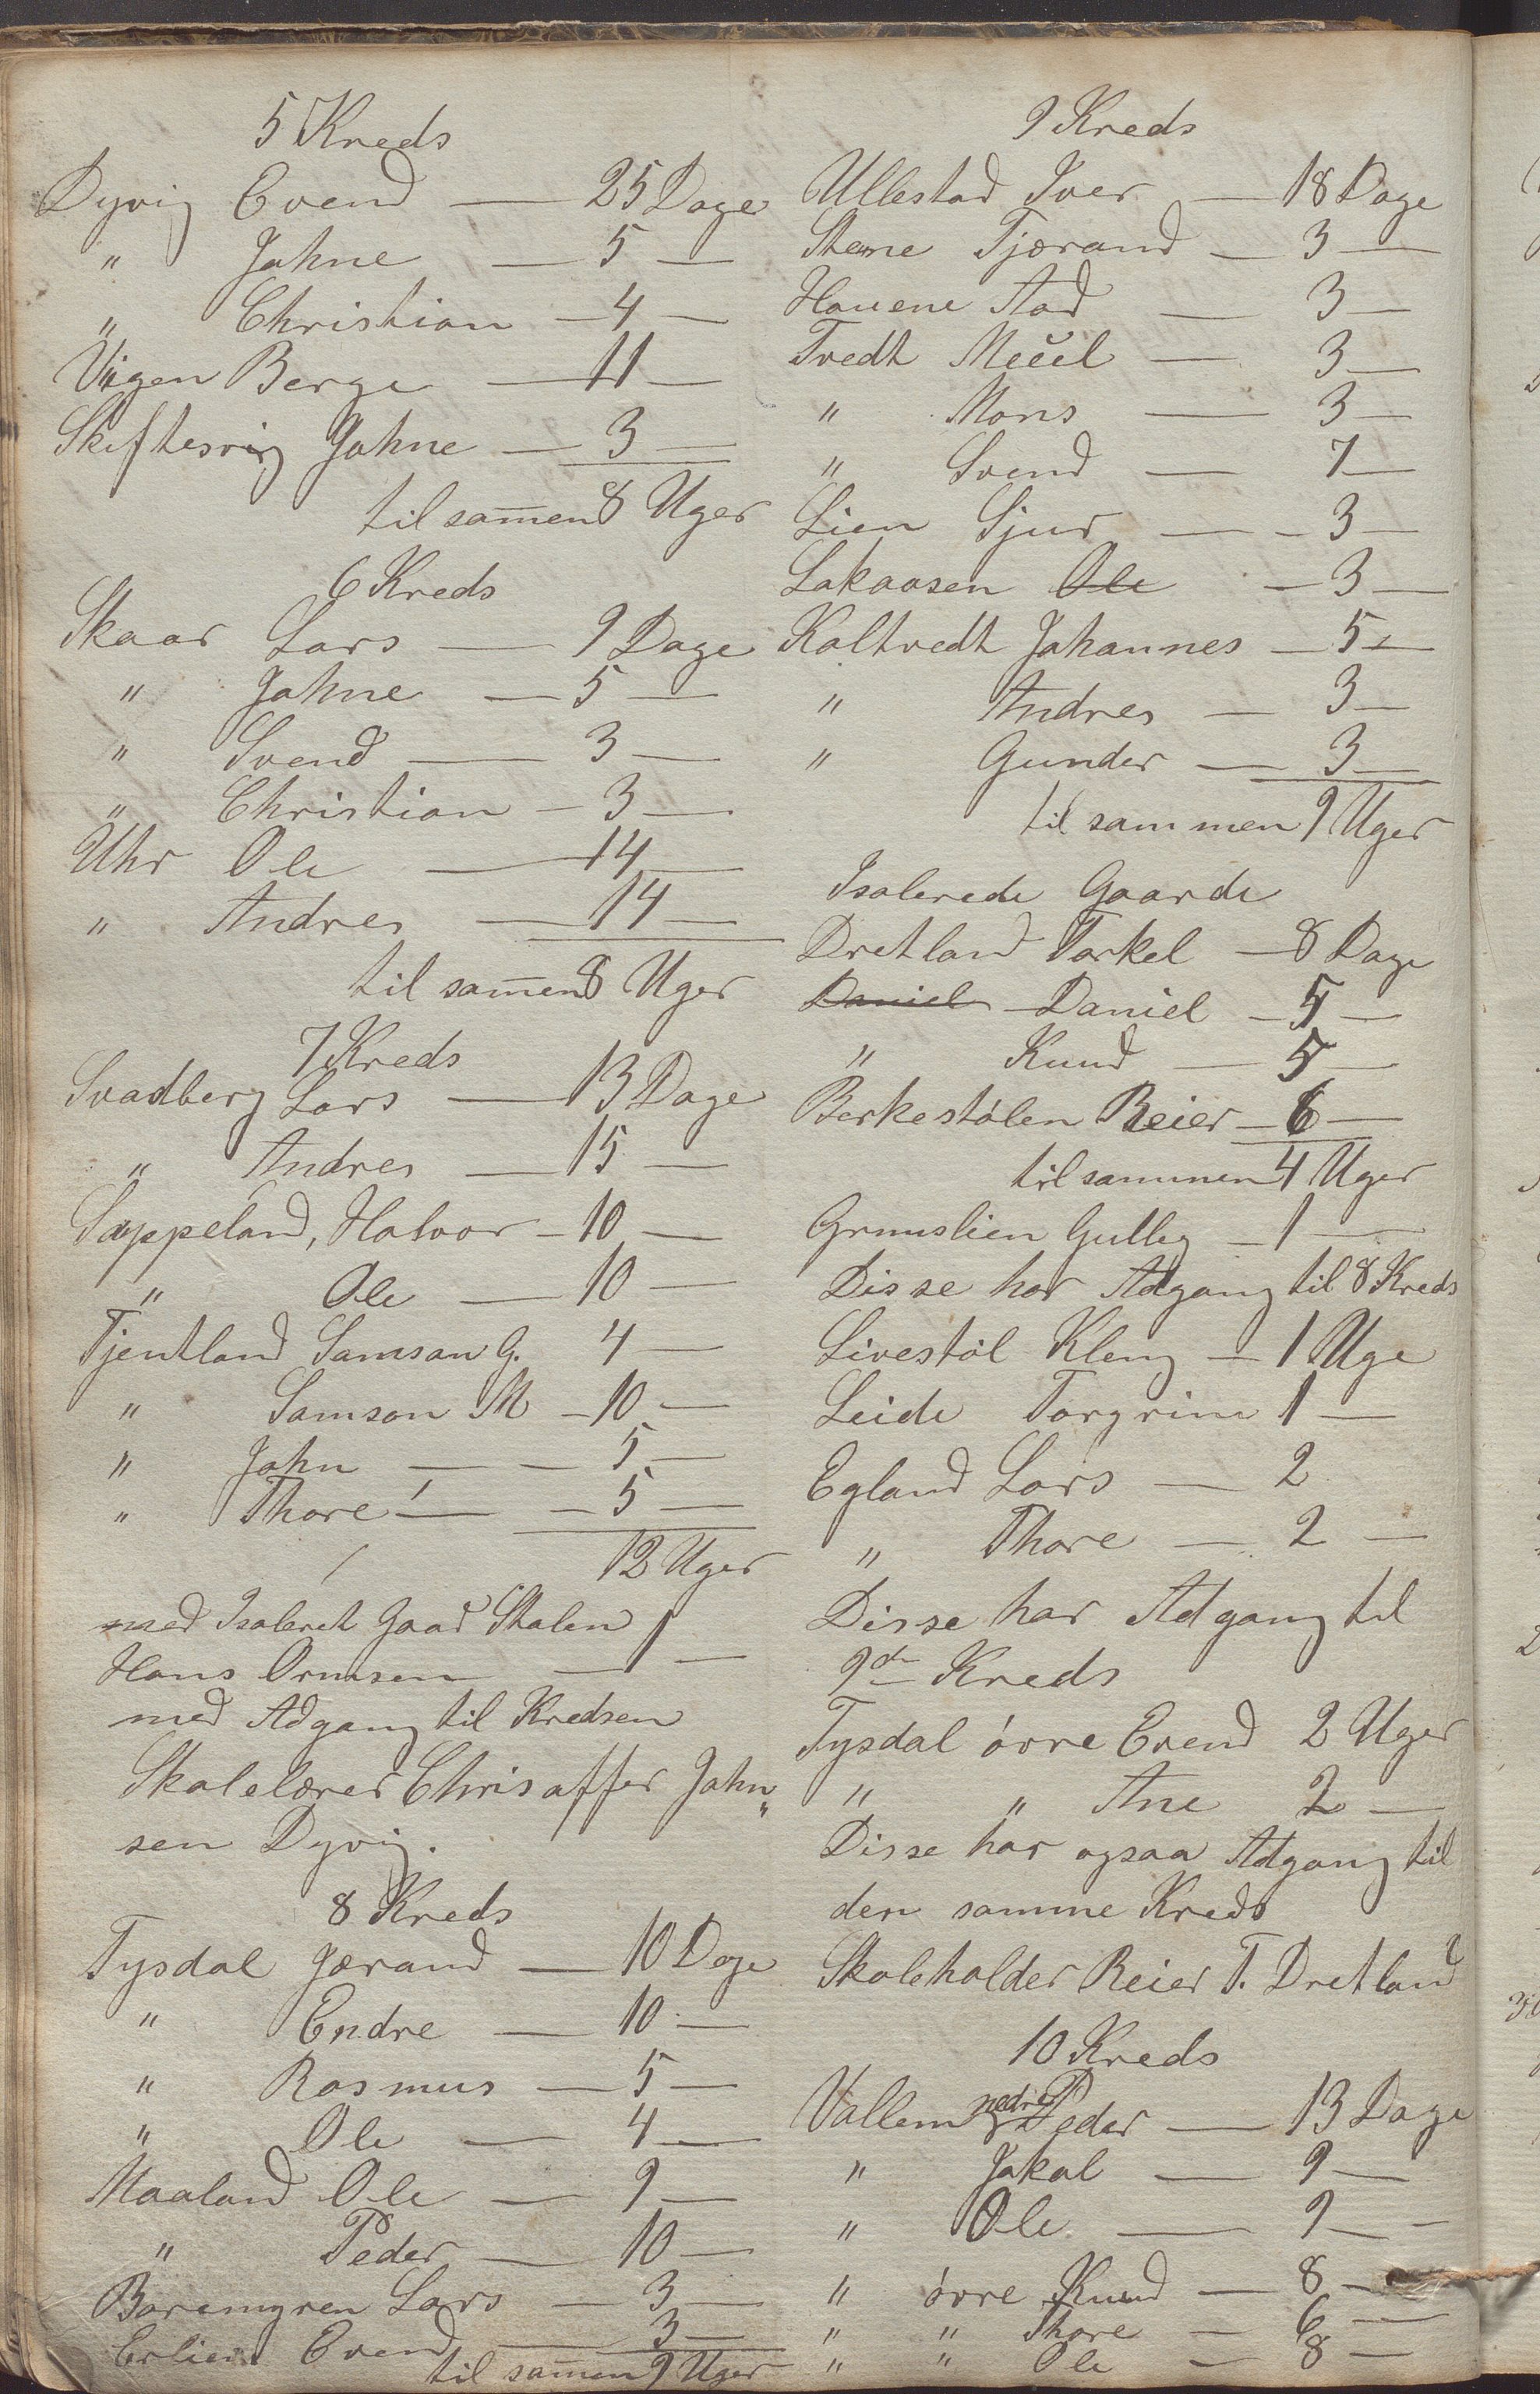 5 Kreds
Dyvig Evend — 25 Dage
" Johne — 5 —
" Christian — 4 —
Viigen Berge — 11 —
Skiftesvig Johne — 3 —
til samen 8 Uger
6 Kreds
Skaar Lars — 9 Dage
" Johne — 5 —
" Svend — 3 —
" Christian — 3 —
Uhr Ole — 14 —
" Andres — 14 —
til samen 8 Uger
7 Kreds
Svadberg Lars — 13 Dage
" Andres — 15 —
Sæppeland, Halvor — 10 —
" Ole — 10 —
Tjentland Samson G. 4 —
" Samson M — 10 —
" John — — 5 —
" Thore — — 5 —
12 Uger
med Isoleret Gaad Stalen
Hans Ormsen — 1 —
med Adgang til Kredsen
Skolelærer Chrisaffer John„
sen Dyvig.
8 Kreds
Tysdal Jærand — 10 Dage
" Endre — 10 —
" Rasmus — 5 —
" Ole — 4 —
Maaland Ole — 9 —
" Peder — 10 —
Baremyren Lars — 3 —
Erlien Evend — 3 —
til samen 9 Uger
9 Kreds
Ullestad Iver — 18 Dage
Stene Tjærand — 3 —
Houene Aad — 3 —
Tvedt — 3 —
" Mons — 3 —
" Svend — 7 —
Lien Sjur — — 3 —
Lakaasen Ole — 3 —
Koltvedt Johannes — 5 —
" Andres — 3 —
" Gunder — 3 —
til sammen 9 Uger
Isolerede Gaarde
Dretland Torkel — 8 Dage
Daniel Daniel — 5 —
" Knud — 5 —
Berkestölen Reier — 6 —
til sammen 4 Uger
Gulleg — 1 —
Disse har Adgang til 8 Kreds
Livestöl Kleng — 1 Uge
Leide Torgrim 1 —
Egland Lars — 2
" Thore — 2 —
Disse har Adgang til
9de Kreds
Tysdal övre Evend 2 Uger
" " Ane 2 —
Disse har ogsaa Adgang til
den samme Kreds
Skoleholder Reier T. Dretland
10 Kreds
Vallem nedre Peder — 13 Dage
" Jakob — 9 —
" Ole — 9 —
" övre Knud — 8 —
" " Thore — 6 —
" " Ole — 8 —